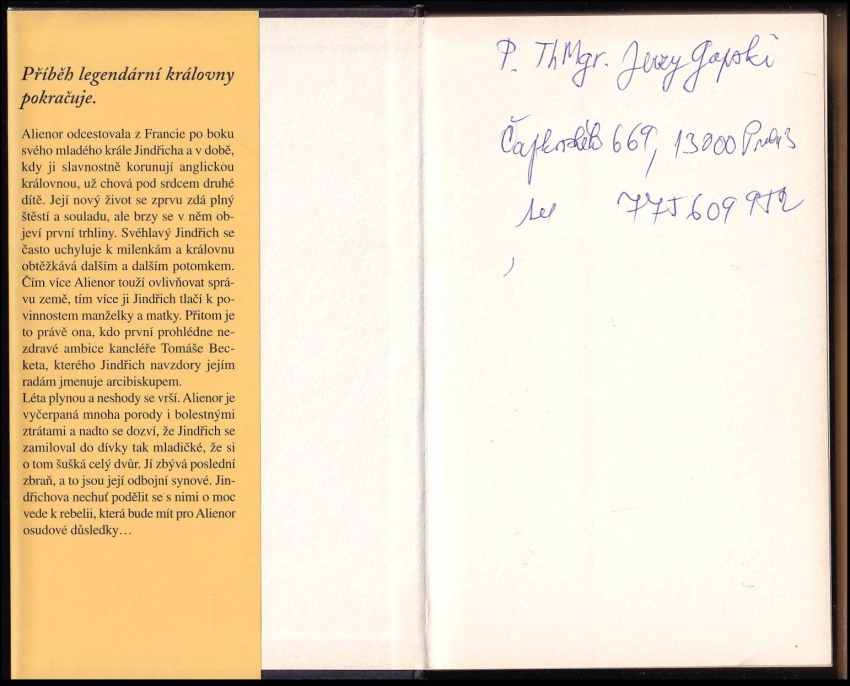 Příběh legendární královny
pokračuje.
Alienor odcestovala z Francie po boku
svého mladého krále Jindřicha a v době,
kdy ji slavnostně korunují anglickou
královnou, už chová pod srdcem druhé
dítě. Její nový život se zprvu zdá plný
štěstí a souladu, ale brzy se v něm ob-
jeví první trhliny. Svéhlavý Jindřich se
často uchyluje k milenkám a královnu
obtěžkává dalším a dalším potomkem.
Čím více Alienor touží ovlivňovat sprá-
vu země, tím více ji Jindřich tlačí k po-
vinnostem manželky a matky. Přitom je
to právě ona, kdo první prohlédne ne-
zdravé ambice kancléře Tomáše Bec-
keta, kterého Jindřich navzdory jejím
radám jmenuje arcibiskupem.
Léta plynou a neshody se vrší. Alienor je
vyčerpaná mnoha porody i bolestnými
ztrátami a nadto se dozví, že Jindřich se
zamiloval do dívky tak mladičké, že si
o tom šušká celý dvůr. Jí zbývá poslední
zbraň, a to jsou její odbojní synové. Jin-
dřichova nechuť podělit se s nimi o moc
vede k rebelii, která bude mít pro Alienor
osudové důsledky…
P. ThMgr. Jerzy
669, 13000
tel 775609